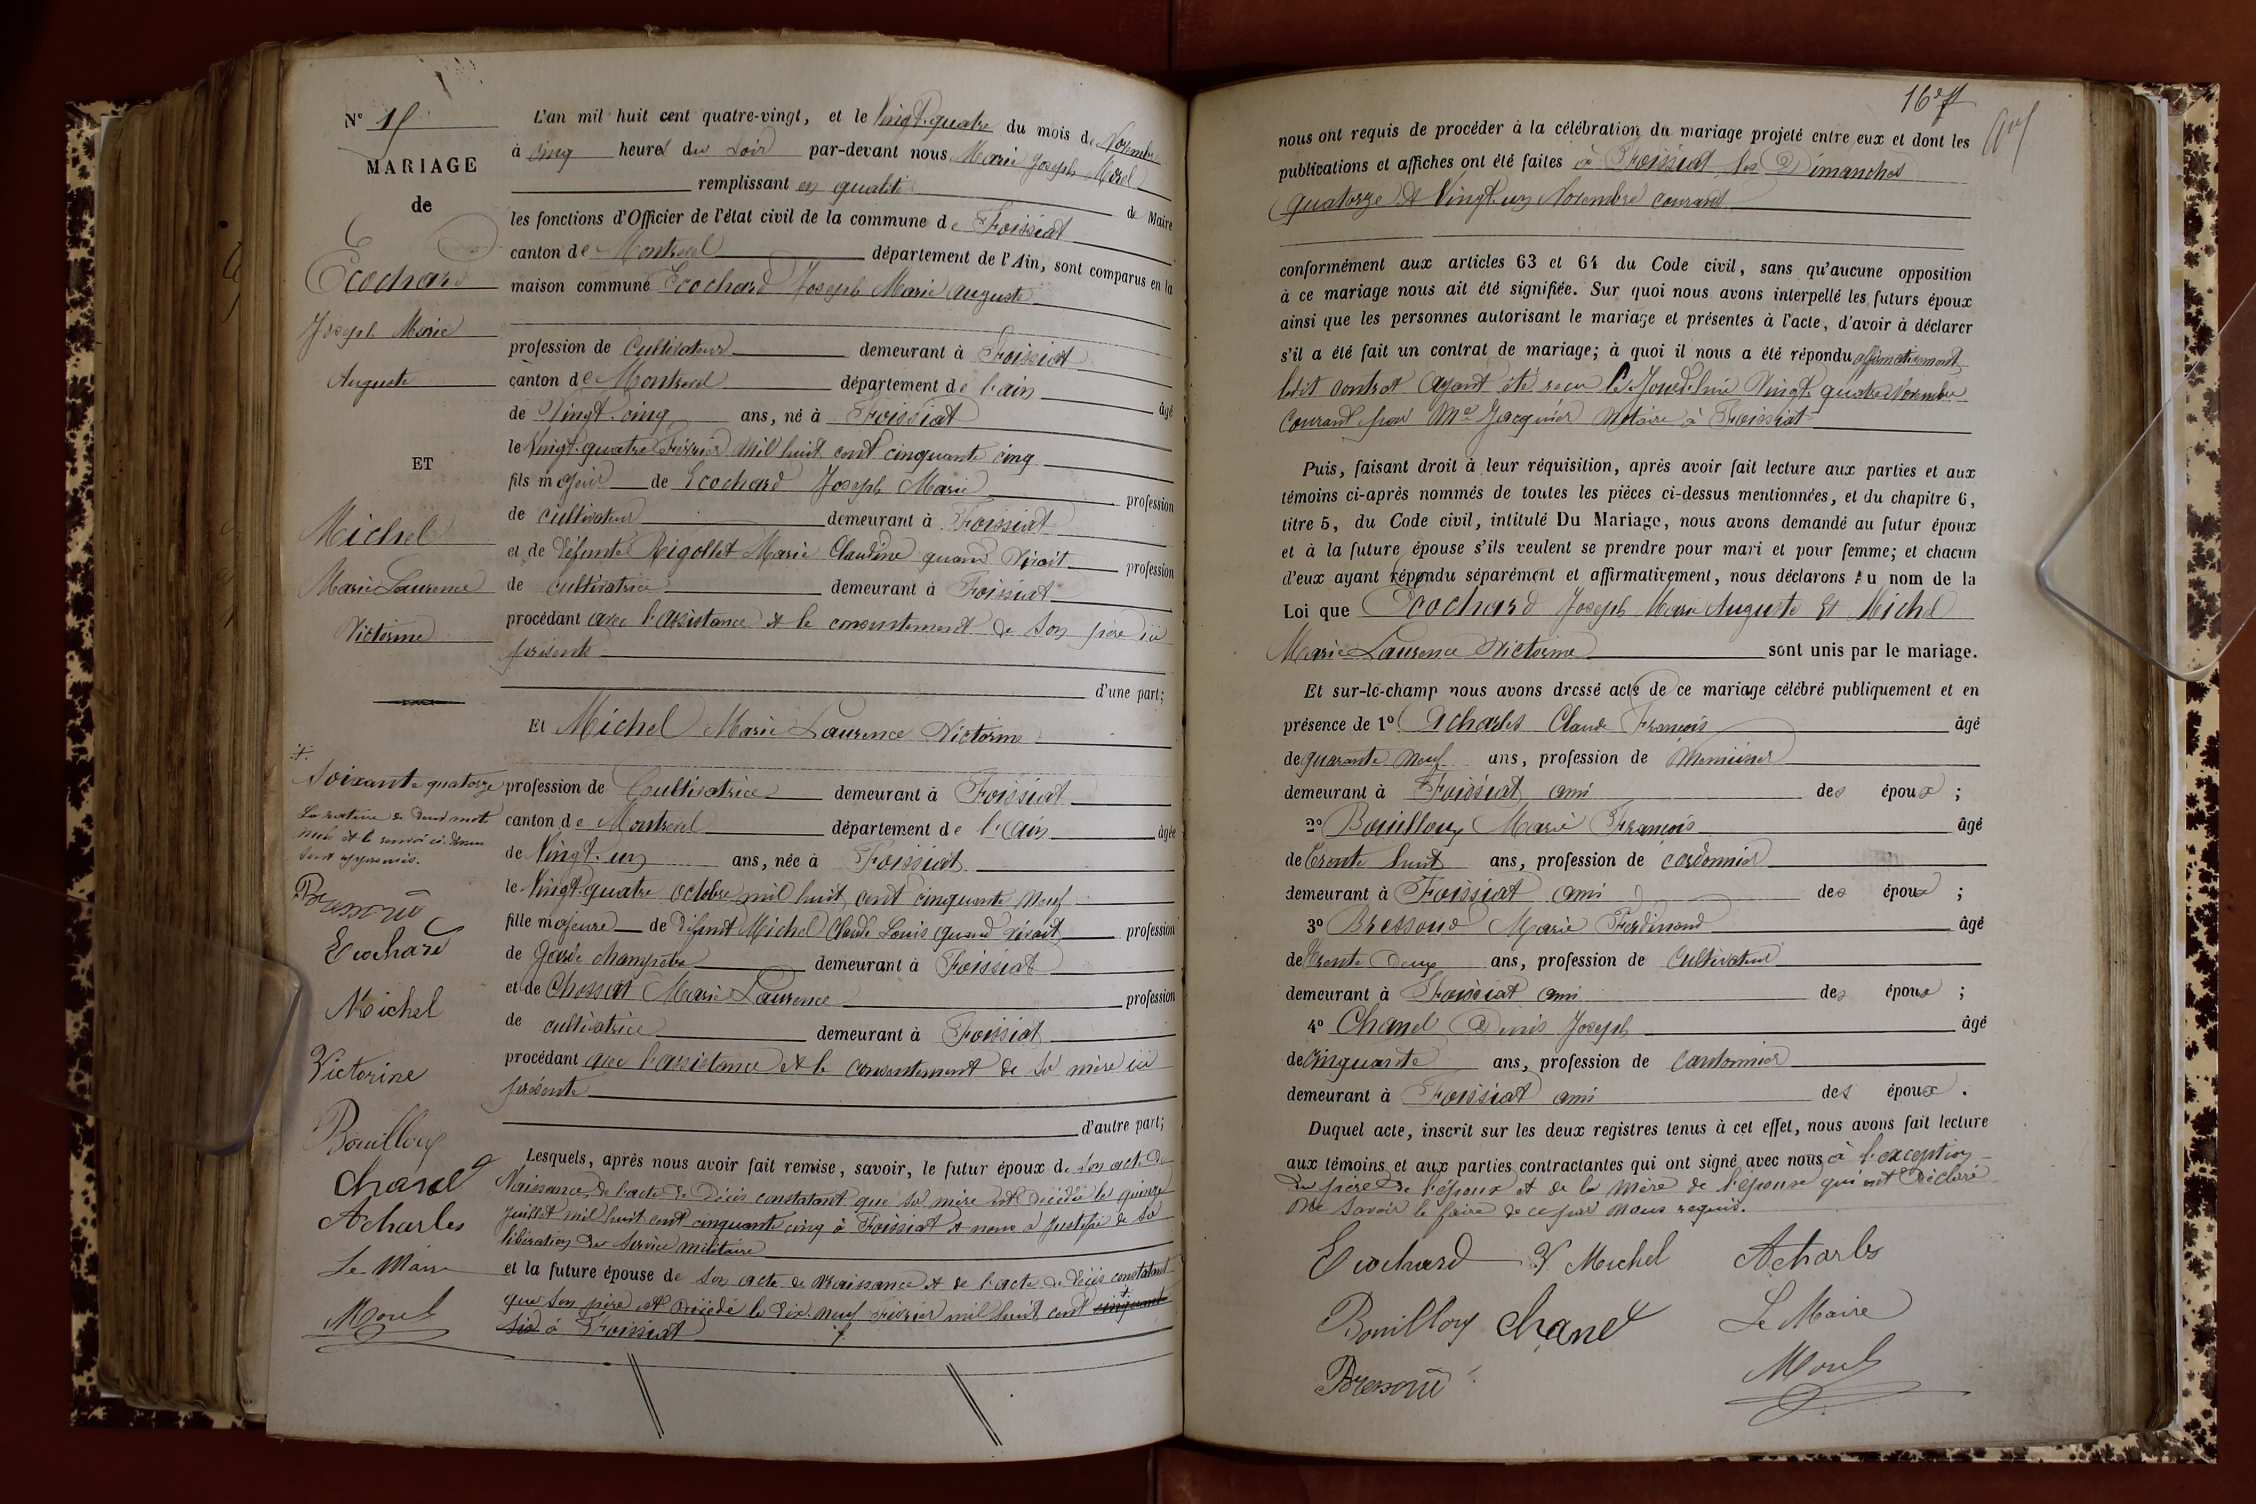 N° 15
MARIAGE
de
Ecochard
Joseph Marie
Auguste
ET
Michel
Marie Laurence
Victorine
+
Soixante quatorze
La rature de deux mots
nuls et le renvoi ci-dessus
sont approuvés.
Bressoud
Ecochard
Michel
Victorine
Bouilloux
Chanel
Acharles
Le Maire
Morel
L'an mil huit cent quatre-vingt, et le Vingt-quatre du mois de Novembre
à cinq heures du soir par-devant nous Marie Joseph Morel
remplissant en qualité de Maire
les fonctions d'Officier de l'état civil de la commune de Foissiat
canton de Montrevel département de l'Ain, sont comparus en la
maison commune Ecochard Joseph Marie Auguste
profession de Cultivateur demeurant à Foissiat
canton de Montrevel département de l'ain âgé
de Vingt-cinq ans, né à Foissiat
le Vingt-quatre Février mil huit cent cinquante cinq
fils majeur de Ecochard Joseph Marie profession
de cultivateur demeurant à Foissiat
et de défunte Rigollet Marie Claudine quand vivait profession
de cultivatrice demeurant à Foissiat
procédant avec l'assistance et le consentement de son père ici
présent
d'une part;
Et Michel Marie Laurence Victorine
profession de Cultivatrice demeurant à Foissiat
canton de Montrevel département de l'Ain âgée
de Vingt-un ans, née à Foissiat
le Vingt-quatre octobre mil huit cent cinquante neuf
fille majeure de défunt Michel Claude Louis quand vivait profession
de garde champêtre demeurant à Foissiat
et de Chossat Marie Laurence profession
de cultivatrice demeurant à Foissiat
procédant avec l'assistance et le consentement de sa mère ici
présente
d'autre part;
Lesquels, après nous avoir fait remise, savoir, le futur époux de son acte de
Naissance, de l'acte de décès constatant que sa mère est décédée le quinze
Juillet mil huit cent cinquante cinq à Foissiat et nous a justifié de sa
libération du service militaire
et la future épouse de son acte de naissance et de l'acte de décès constatant
que son père est décédé le dix-neuf Février mil huit cent + cinquante
six à Foissiat
167
nous ont requis de procéder à la célébration du mariage projeté entre eux et dont les
publications et affiches ont été faites à Foissiat les Dimanches
quatorze et Vingt-un Novembre courant
conformément aux articles 63 et 64 du Code civil, sans qu'aucune opposition
à ce mariage nous ait été signifiée. Sur quoi nous avons interpellé les futurs époux
ainsi que les personnes autorisant le mariage et présentes à l'acte, d'avoir à déclarer
s'il a été fait un contrat de mariage; à quoi il nous a été répondu affirmativement
ledit contrat ayant été reçu le Vingt-quatre Novembre
courant par Me Jacquier Notaire à Foissiat
Puis, faisant droit à leur réquisition, après avoir fait lecture aux parties et aux
témoins ci-après nommés de toutes les pièces ci-dessus mentionnées, et du chapitre 6,
titre 5, du Code civil, intitulé Du Mariage, nous avons demandé au futur époux
et à la future épouse s'ils veulent se prendre pour mari et pour femme; et chacun
d'eux ayant répondu séparément et affirmativement, nous déclarons au nom de la
Loi que Ecochard Joseph Marie Auguste et Michel
Marie Laurence Victorine sont unis par le mariage.
Et sur-le-champ nous avons dressé acte de ce mariage célébré publiquement et en
présence de 1° Acharles Claude François âgé
de quarante neuf ans, profession de Menuisier
demeurant à Foissiat ami des époux ;
2° Bouilloux Marie François âgé
de trente huit ans, profession de cordonnier
demeurant à Foissiat ami des époux ;
3° Bressoud Marie Ferdinand âgé
de trente deux ans, profession de Cultivateur
demeurant à Foissiat ami des époux ;
4° Chanel Denis Joseph âgé
de cinquante ans, profession de Cantonnier
demeurant à Foissiat ami des époux .
Duquel acte, inscrit sur les deux registres tenus à cet effet, nous avons fait lecture
aux témoins et aux parties contractantes qui ont signé avec nous à l'exception
du père de l'époux et de la mère de l'épouse qui ont déclaré
ne savoir le faire de ce par nous requis.
Ecochard V Michel Acharles
Bouilloux Chanel Le Maire
Bressoud Morel